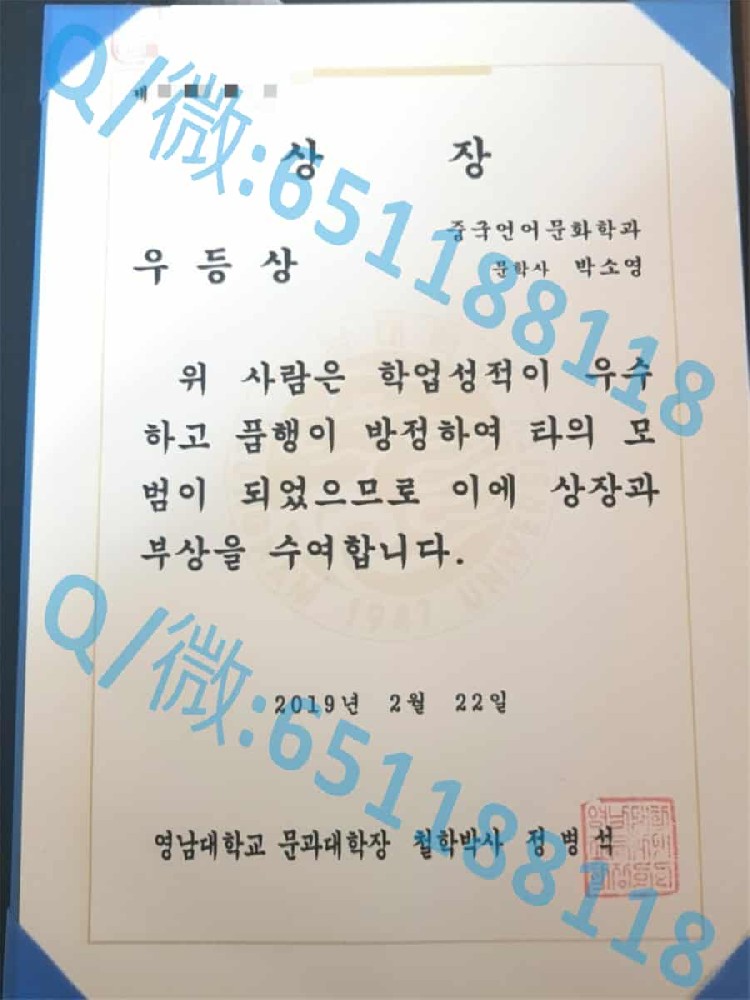 상 장
중국언어문화학과
우등상 문학사 박소영
위 사람은 학업성적이 우수
하고 품행이 방정하여 타의 모
범이 되었으므로 이에 상장과
부상을 수여합니다.
2019년 2월 22일
영남대학교 문과대학장 철학박사 정병석
Q/微:651188118
Q/微:651188118